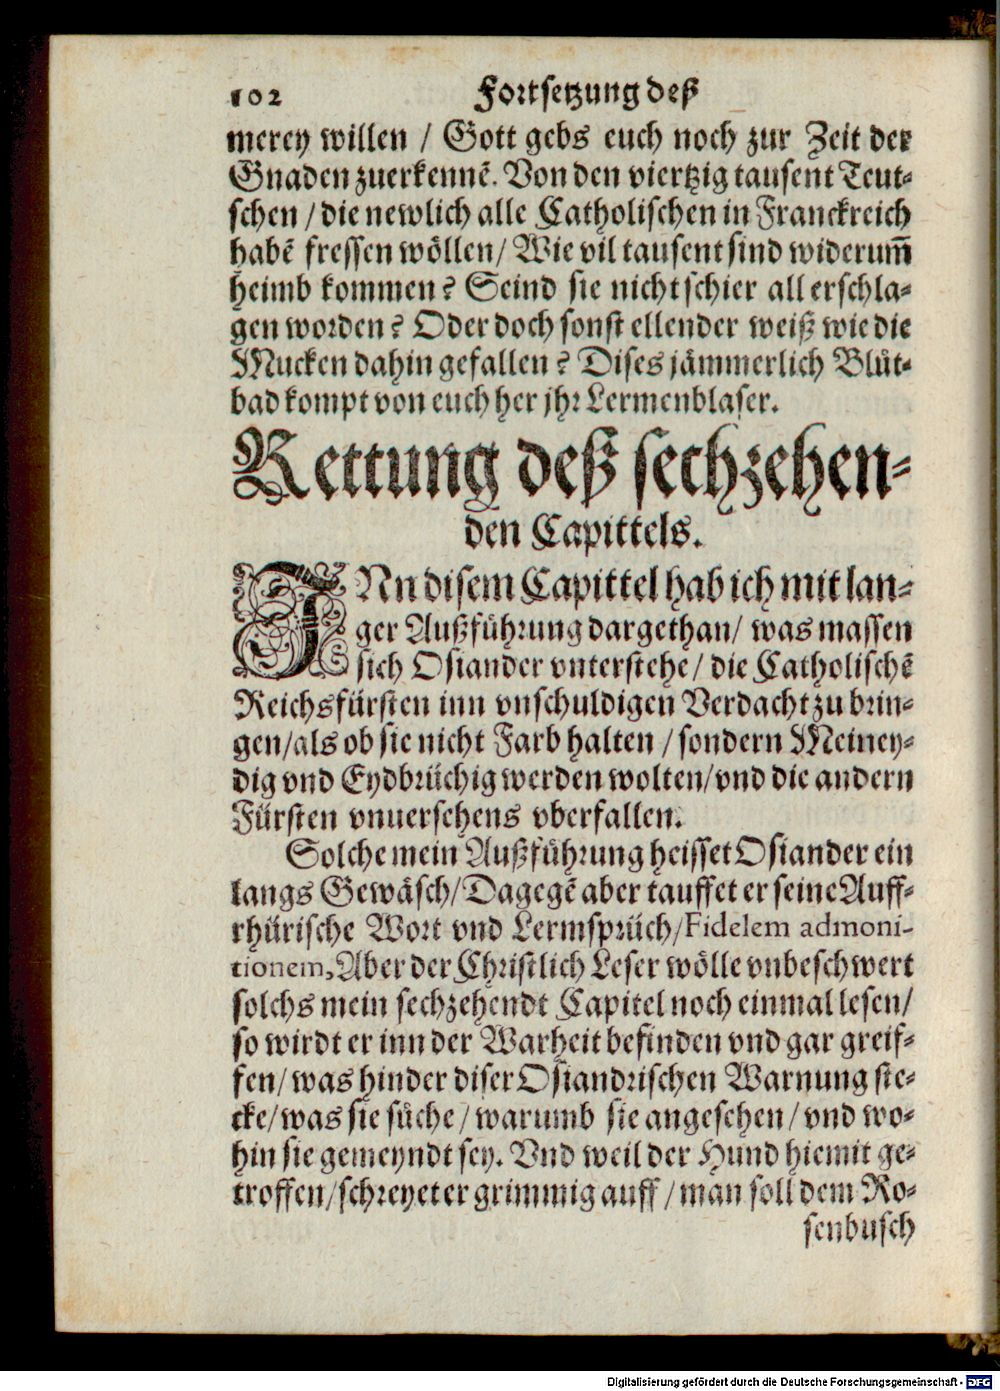 102 Fortsetzung deß
merey willen / Gott gebs euch noch zur Zeit der
Gnaden zuerkennẽ. Von den viertzig tausent Teut-
schen / die newlich alle Catholischen in Franckreich
habẽ fressen wöllen / Wie vil tausent sind widerum̃
heimb kommen? Seind sie nicht schier all erschla-
gen worden? Oder doch sonst ellender weiß wie die
Mucken dahin gefallen? Dises jämmerlich Blůt-
bad kompt von euch her jhr Lermenblaser.
Rettung deß sechzehen-
den Capittels.
INn disem Capittel hab ich mit lan-
ger Außführung dargethan / was massen
sich Osiander vnterstehe / die Catholischẽ
Reichsfürsten inn vnschuldigen Verdacht zu brin-
gen / als ob sie nicht Farb halten / sondern Meiney-
dig vnd Eydbrüchig werden wolten / vnd die andern
Fürsten vnuersehens vberfallen.
Solche mein Außführung heisset Osiander ein
langs Gewäsch / Dagegẽ aber tauffet er seine Auff-
rhürische Wort vnd Lermsprüch / Fidelem admoni-
tionem, Aber der Christlich Leser wölle vnbeschwert
solchs mein sechzehendt Capitel noch einmal lesen /
so wirdt er inn der Warheit befinden vnd gar greif-
fen / was hinder diser Osiandrischen Warnung ste-
cke / was sie sůche / warumb sie angesehen / vnd wo-
hin sie gemeyndt sey. Vnd weil der Hund hiemit ge-
troffen / schreyet er grimmig auff / man soll dem Ro-
senbusch
Digitalisierung gefördert durch die Deutsche Forschungsgemeinschaft - DFG